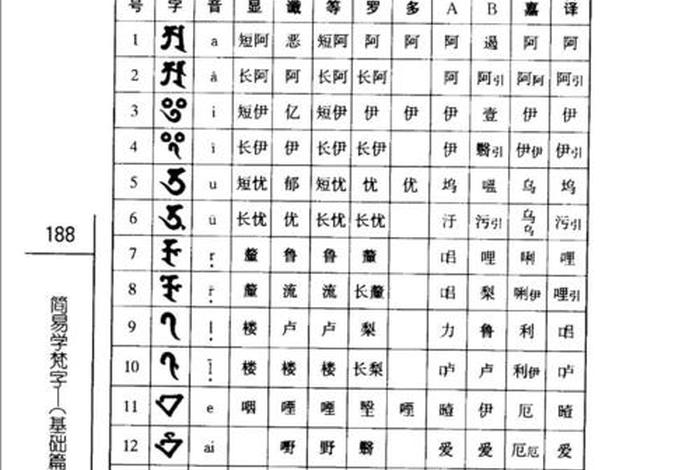 号 字 音 显 谶 等 罗 多 A B 嘉 译
1 a 短阿 恶 短阿 阿 阿 阿 遏 阿 阿
2 ā 长阿 阿 长阿 长阿 阿 阿引 阿阿 阿引
3 i 短伊 亿 短伊 伊 伊 伊 壹 伊 伊
4 ī 长伊 伊 长伊 长伊 伊 翳引 伊伊 伊引
5 u 短忧 郁 短忧 忧 优 坞 嗢 乌 坞
6 ū 长忧 优 长忧 长忧 汙 污引 乌乌 污引
7 ṛ 釐 鲁 鲁 釐 哩 唎 哩
8 ṝ 釐 流 流 长釐 梨 唎伊 哩引
9 ḷ 楼 卢 卢 梨 力 鲁 利
10 ḹ 楼 楼 楼 长梨 卢 利伊
11 e 咽 伊 厄
12 ai 嘢 野 翳 爱 爱 厄厄 爱
188
简易学梵字—(基础篇